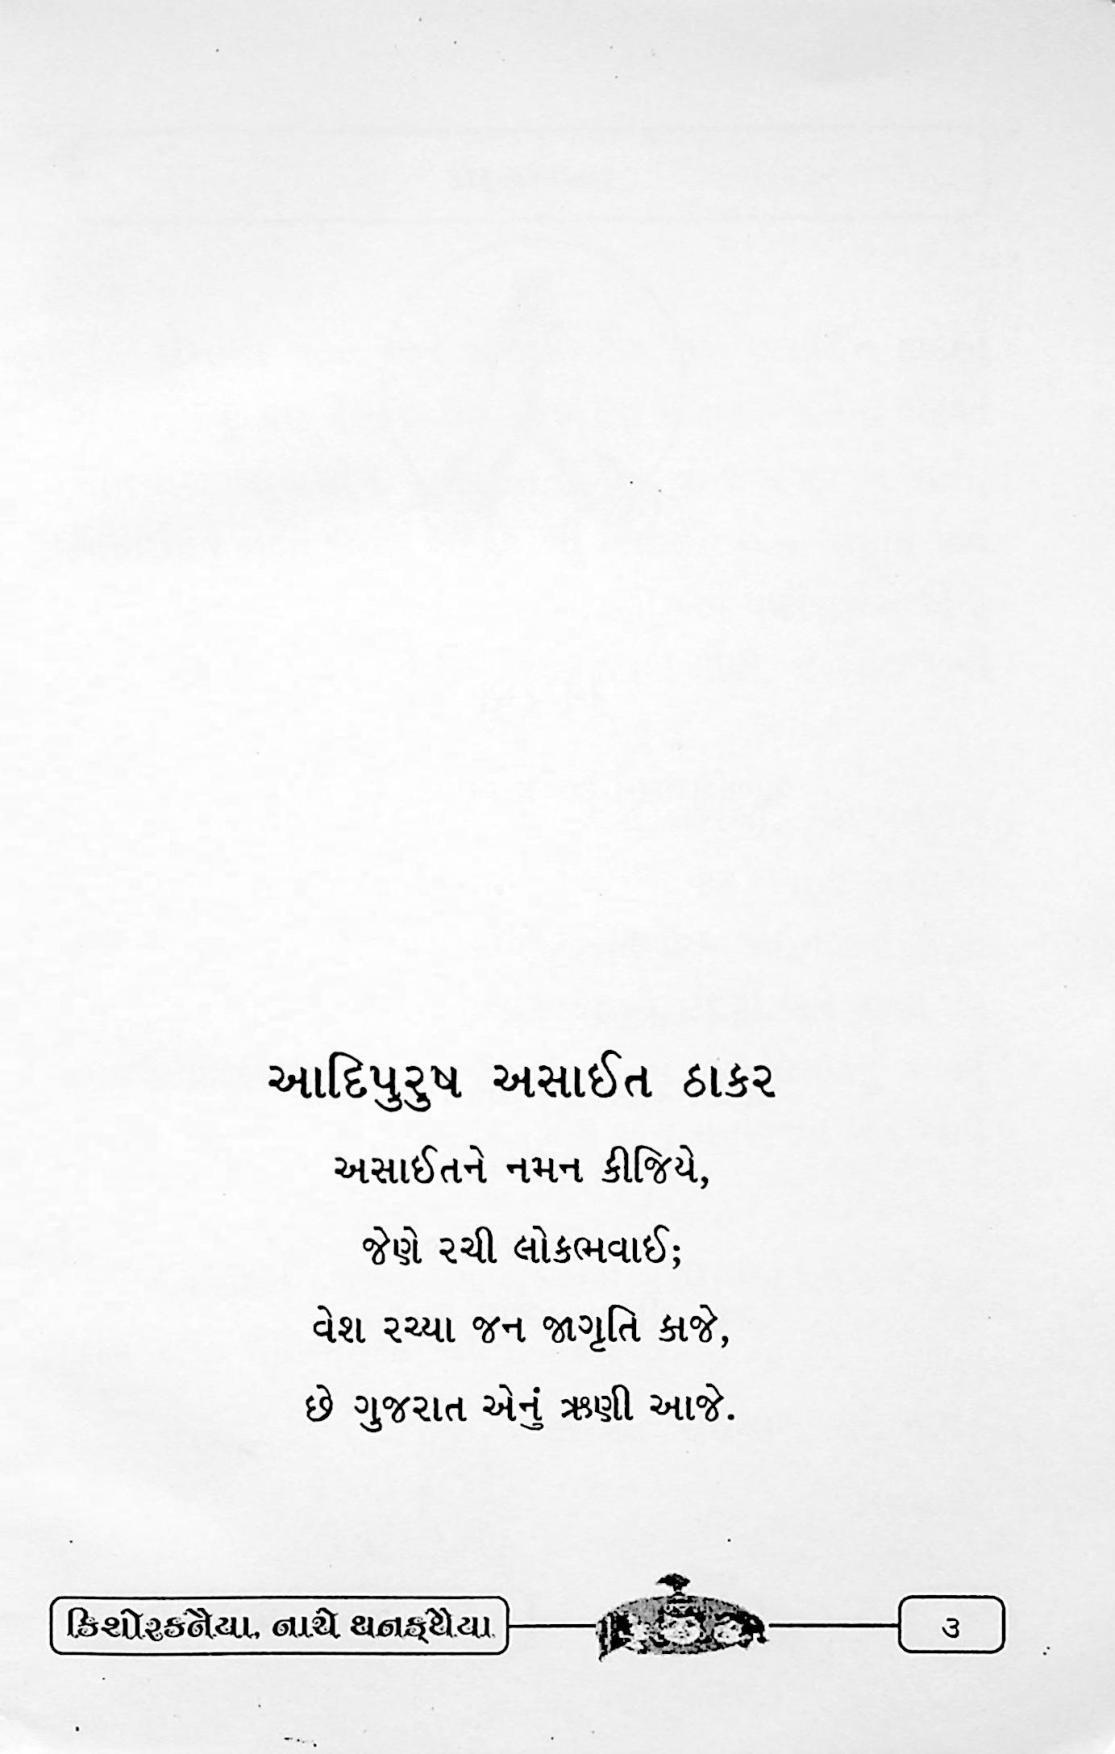 આદિપુરુષ અસાઈત ઠાકર
અસાઈતને નમન કીજિયે,
જેણે રચી લોકભવાઈ;
વેશ રચ્યા જન જાગૃતિ કાજે,
છે ગુજરાત એનું ઋણી આજે.
કિશોરકનૈયા, નાચે થનક્થૈયા
૩